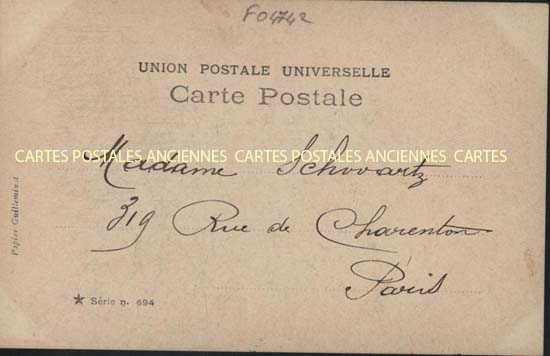 F04742
UNION POSTALE UNIVERSELLE
Carte Postale
Madame Schwartz
CARTES POSTALES ANCIENNES CARTES POSTALES ANCIENNES CARTES
319 Rue de Charenton
Paris
Papier Guilleminot
★ Série n. 694